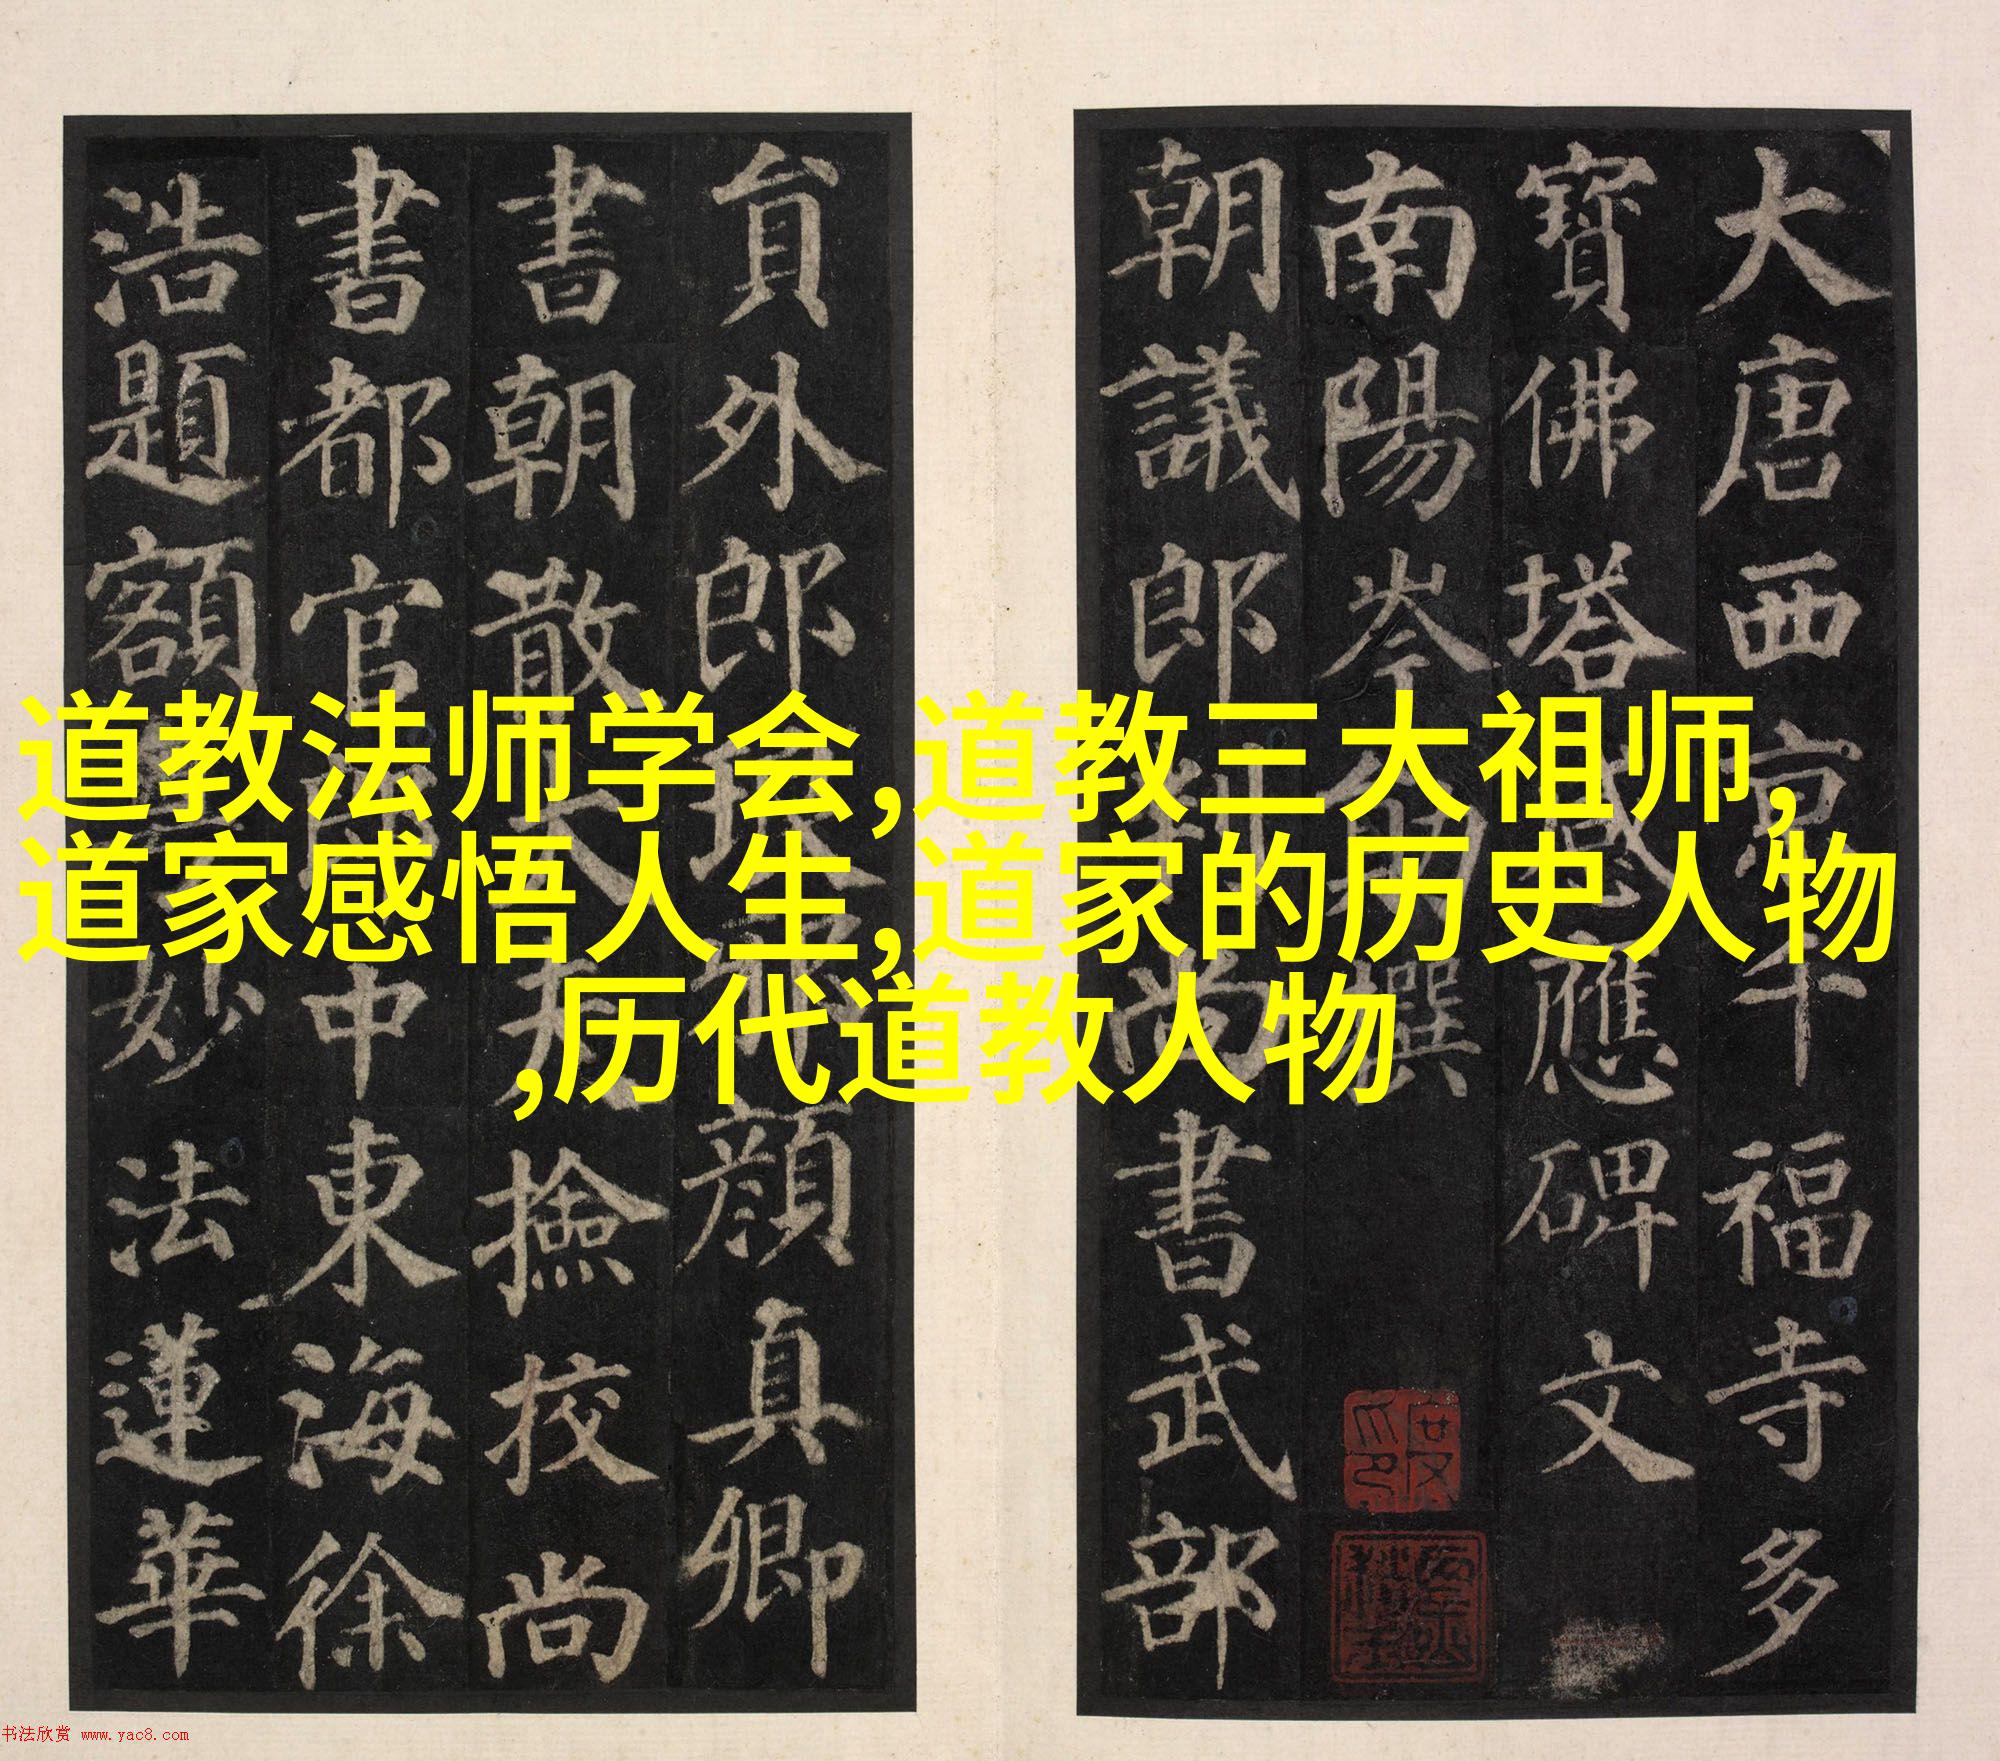 大唐西京千福寺多
寶佛塔感應碑文
南陽岑勛撰
朝議郎判尚書武部
員外郎琅邪顏真卿
書朝散大夫撿校尚
書都官郎中東海徐
浩題額粵妙法蓮華
道教法师学会,道教三大祖师,
道家感悟人生,道家的历史人物
,历代道教人物
书法欣赏 www.yac8.com